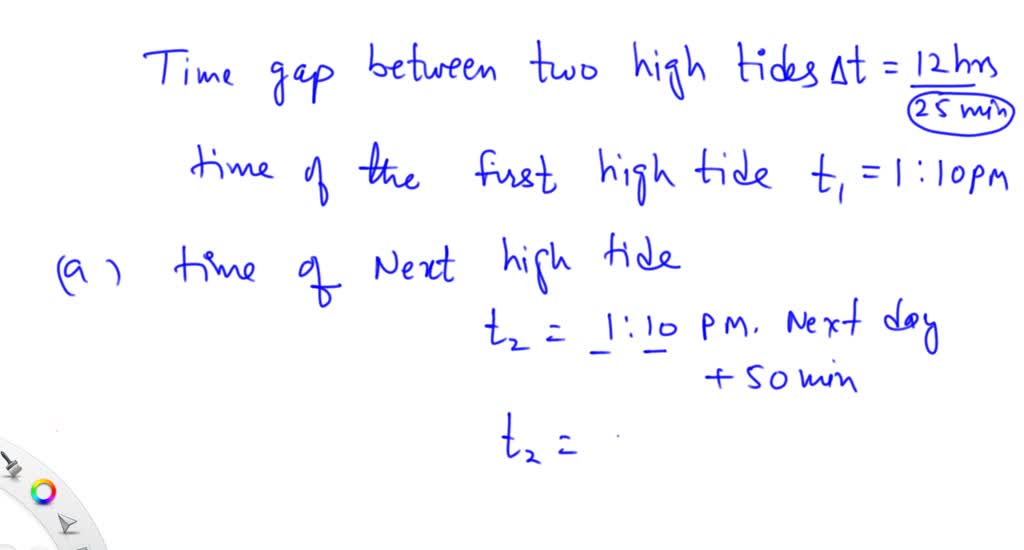 Time gap between two high tides Δt = 12 hrs
25 min
time of the first high tide t₁ = 1:10 PM
(a) time of Next high tide
t₂ = 1:10 PM. Next day
+ 50 min
t₂ =